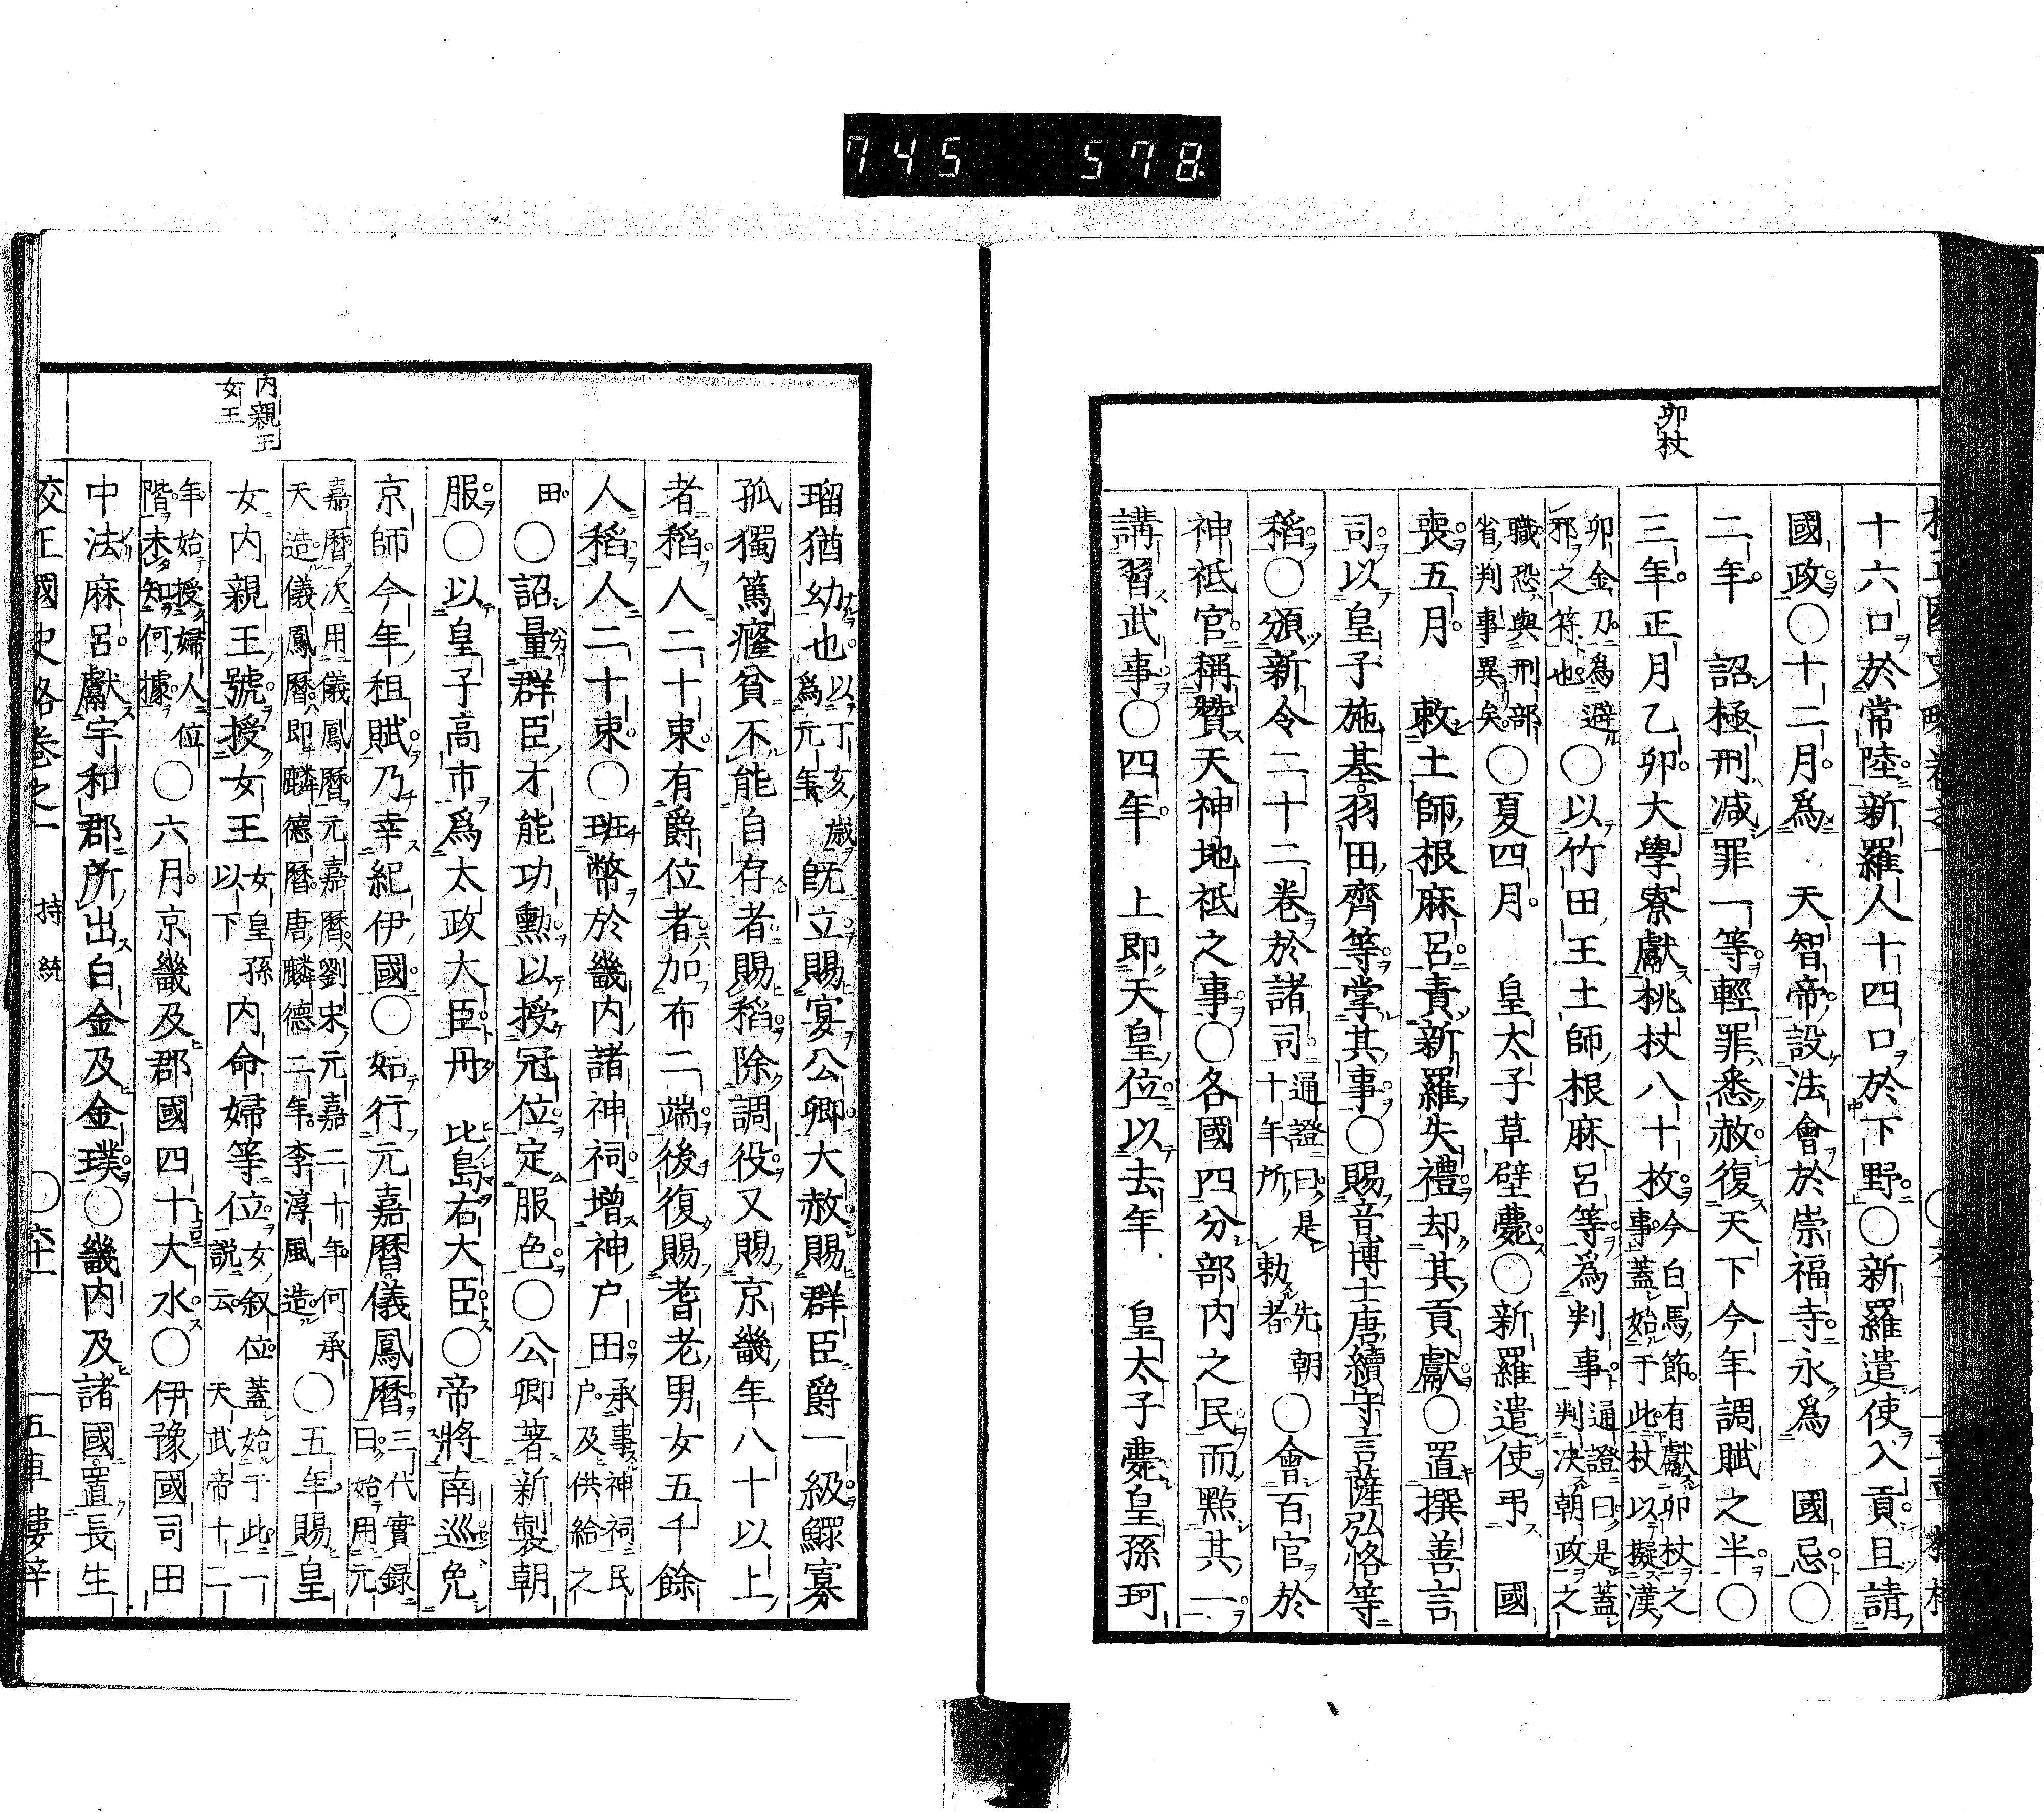 745 578
卯杖
十六口於常陸新羅人十四口於下野○新羅遣使入貢且請
國政○十二月爲 天智帝設法會於崇福寺永爲 國忌○
二年 詔極刑減罪一等輕罪悉赦復天下今年調賦之半○
三年正月乙卯大學寮獻桃杖八十枚今白馬節有獻卯杖之
事蓋始于此杖以擬漢
卯金刀爲避
邪之符也○以竹田王土師根麻呂等爲判事通證曰是蓋
判決朝政之
職恐與刑部
省判事異矣○夏四月 皇太子草壁薨○新羅遣使弔 國
喪五月 敕土師根麻呂責新羅失禮却其貢獻○置撰善言
司以皇子施基羽田齊等掌其事○賜音博士唐續守言薩弘恪等
稻○頒新令二十二卷於諸司通證曰是先朝
十年所勅者○會百官於
神祇官稱贊天神地祇之事○各國四分部内之民而點其一
講習武事○四年 上即天皇位以去年 皇太子薨皇孫珂
内親王
女王
瑠猶幼也以丁亥歲
爲元年既立賜宴公卿大赦賜群臣爵一級鰥寡
孤獨篤癃貧不能自存者賜稻除調役又賜京畿年八十以上
者稻人二十束有爵位者加布二端後復賜耆老男女五千餘
人稻人二十束○班幣於畿内諸神祠增神戸田承事神祠民
戸及供給之
田○詔量群臣才能功勳以授冠位定服色○公卿著新製朝
服○以皇子高市爲太政大臣丹比島右大臣○帝將南巡免
京師今年租賦乃幸紀伊國○始行元嘉曆儀鳳曆三代實録
曰始用元
嘉曆次用儀鳳曆元嘉曆劉宋元嘉二十年何承
天造儀鳳曆即麟德曆唐麟德二年李淳風造○五年賜皇
女内親王號授女王女皇孫
以下内命婦等位女叙位蓋始于此一
說云天武帝十二
年始授婦人位
階未知何據○六月京畿及郡國四十大水○伊豫國司田
中法麻呂獻宇和郡所出白金及金璞○畿内及諸國置長生
校正國史略卷之一 持統 ○六十一 五車樓梓